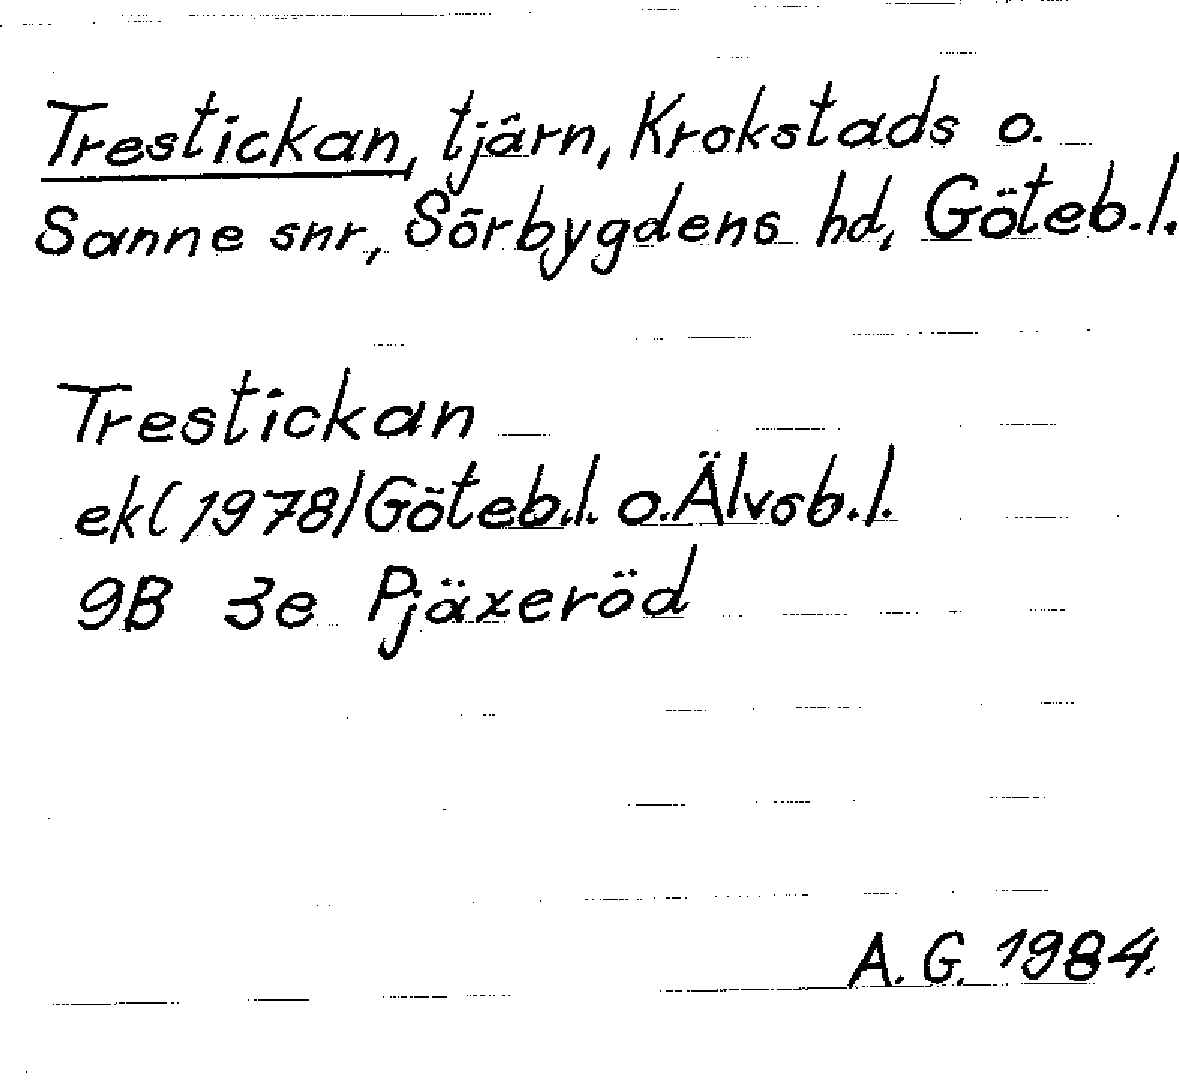 Trestickan, tjärn, Krokstads o.
Sanne snr, Sörbygdens hd, Göteb.l.
Trestickan
ekl(1978)Göteb.l. o.Älvsb.l.
9B 3e Pjäxeröd
A.G. 1984.